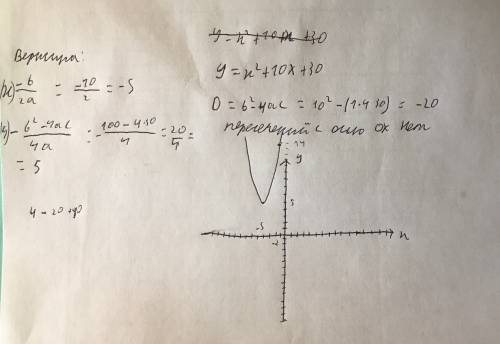 Вершина:
x) -b/2a = -10/2 = -5
y) - b² - 4ac / 4a = - 100 - 4·30 / 4 = 20/4 =
= 5
y = x² + 10x + 30
y = x² + 10x + 30
D = b² - 4ac = 10² - (1·4·30) = -20
пересечений с осью ox нет
14
y
5
-5
-2
x